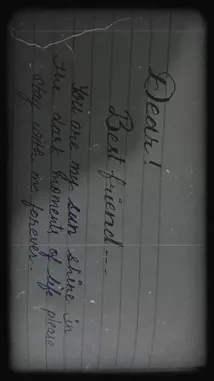 Dear!
Best friend...
You are my sun shine in
the dark moments of life please
stay with me forever.